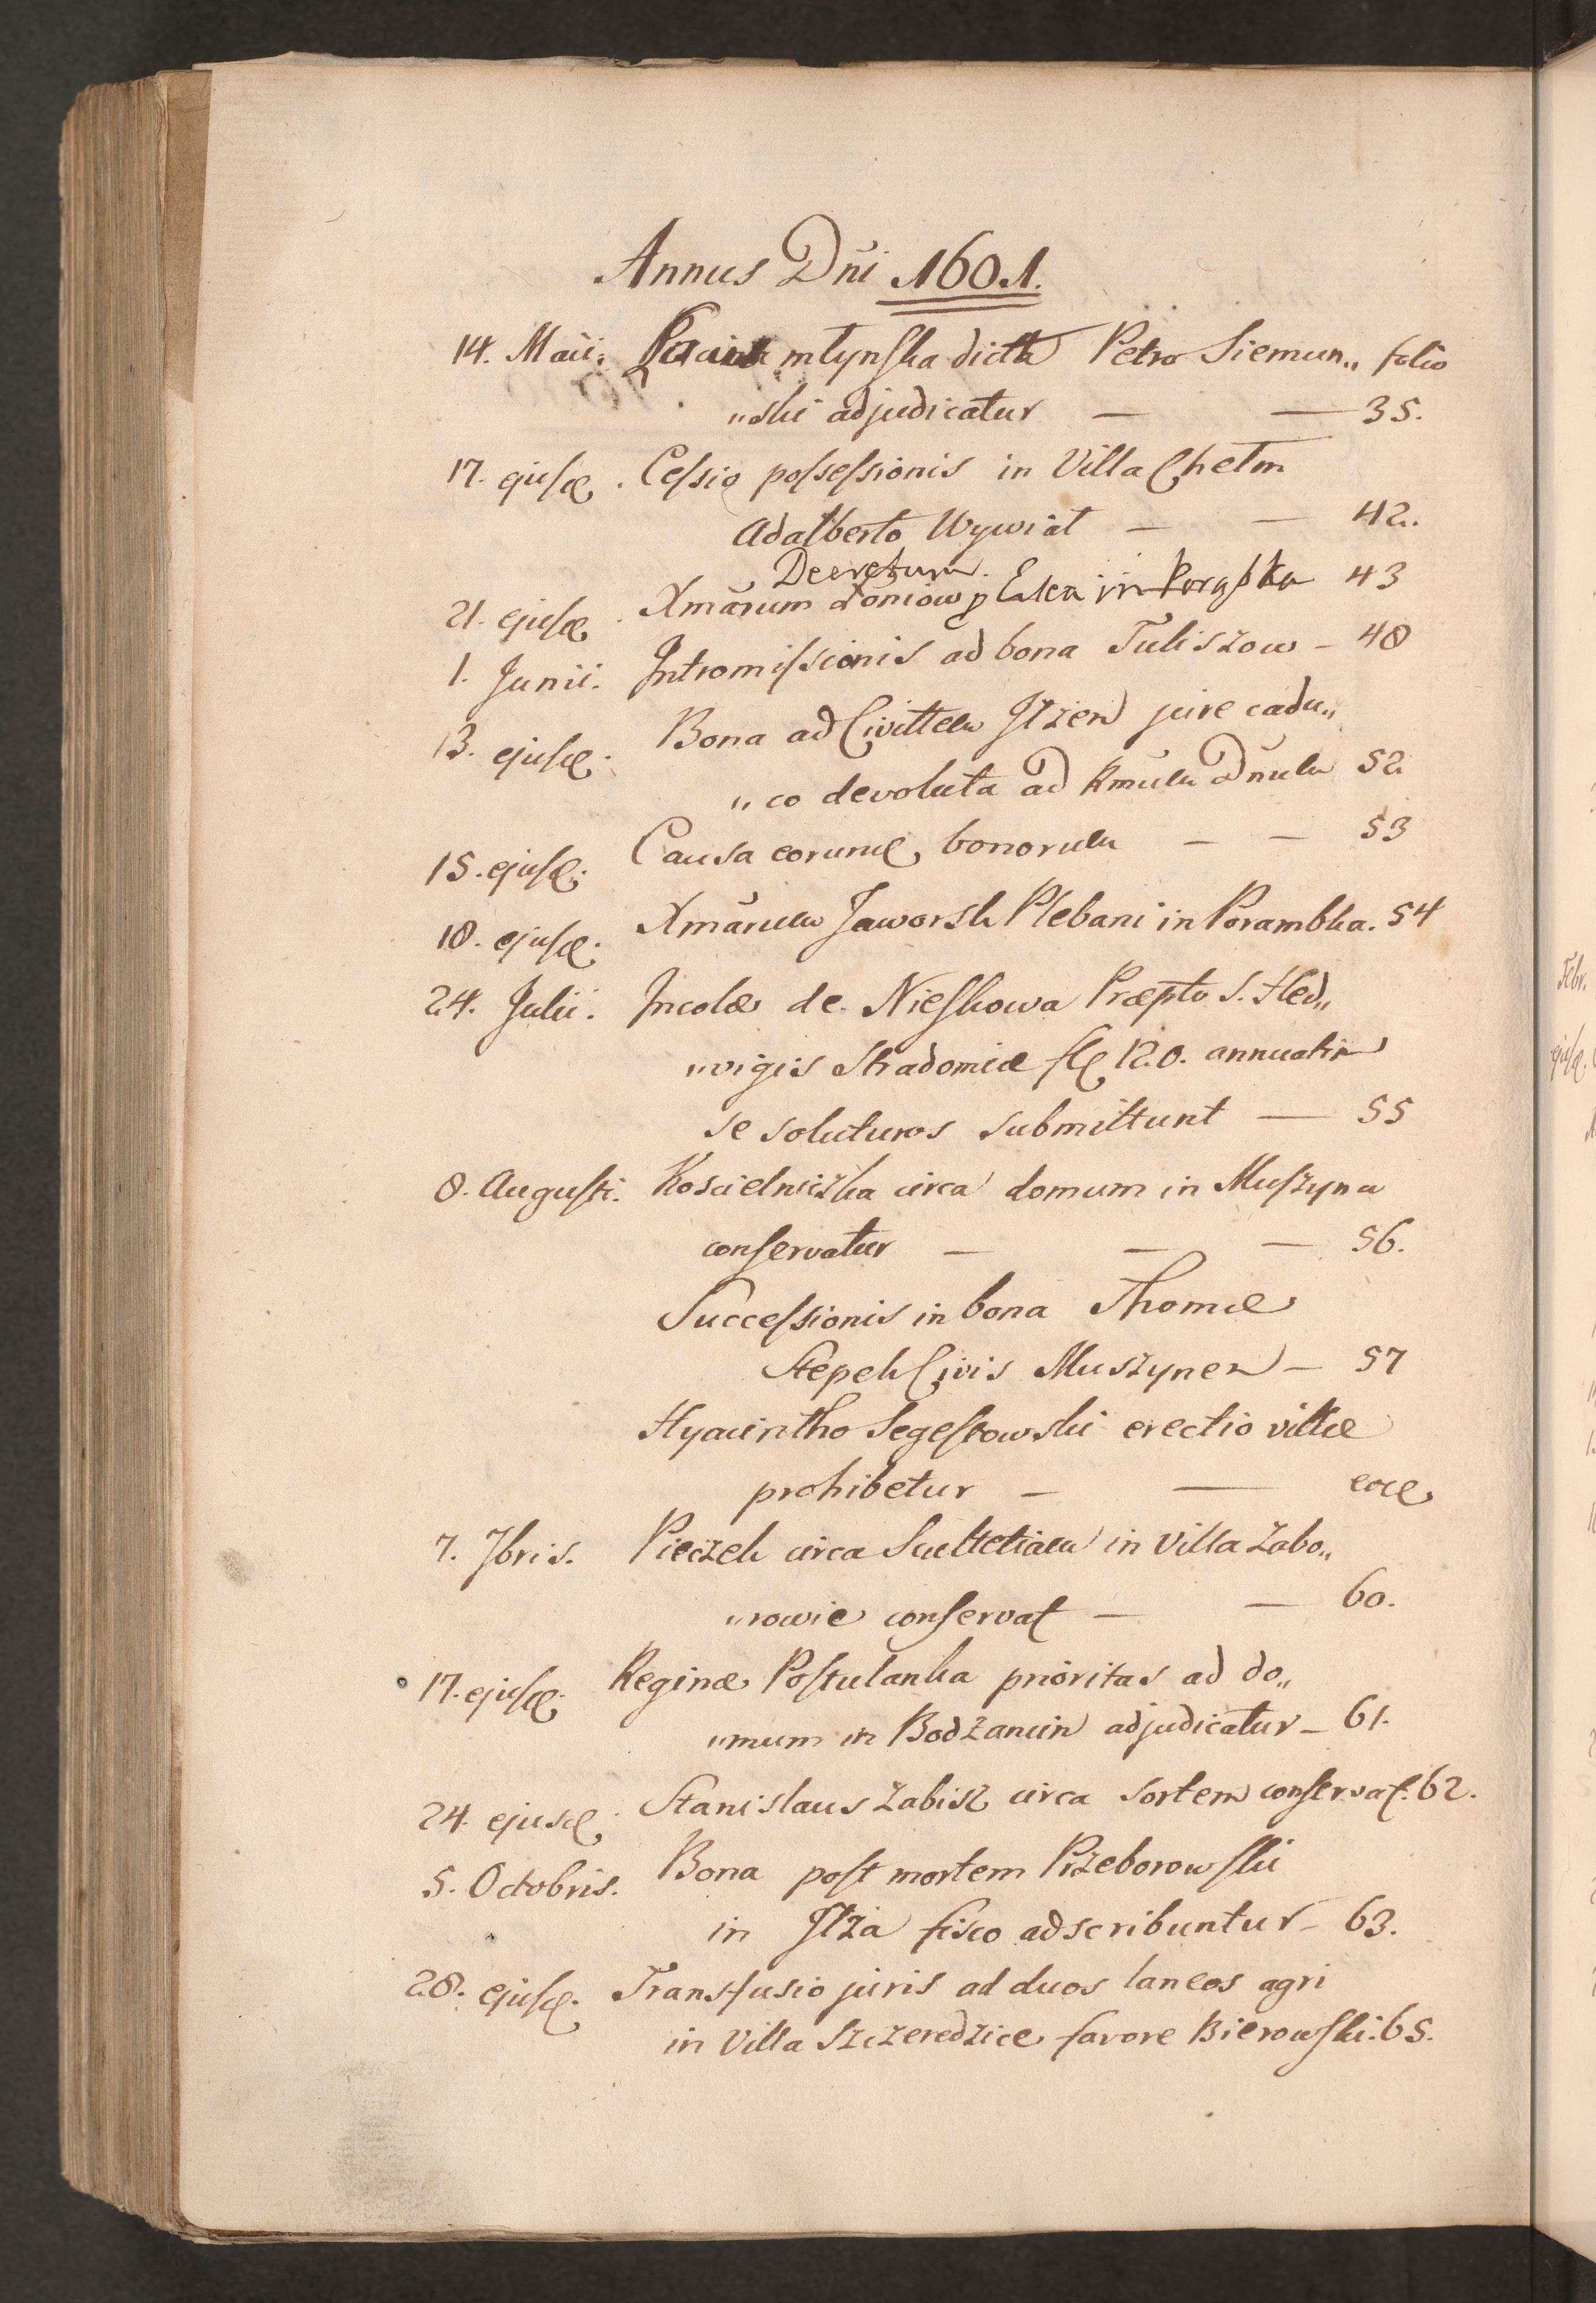 Annus Dñi 1601.
14. Maii. młynska dicta Petro Siemun„ folio
„ski adjudicatur — — 35.
17. ejusd. Cessio possessionis in Villa Chełm
Adalberto Wywiał — — 42.
Decretum.
21. ejusd. Xmarum in 43
1. Junii. Intromissionis ad bona Tuliszow – 48
13. ejusd. Bona ad Civittem Iłzen jure cadu„
„co devoluta ad Rmum Dnum 52
15. ejusd. Causa eorumd bonorum — — 53
18. ejusd. Xmarum Jaworsk Plebani in Porambka. 54
24. Julii. Incolæ de Nieskowa Præpto S. Hed„
„vigis Stradomiæ fl 120. annuatim
se soluturos submittunt — 55
8. Augusti. Koscielniczka circa domum in Muszyna
conservatur — — — 56.
Successionis in bona Thomæ
Stepek Civis Muszynen — 57
Hyacintho Segestowski erectio villæ
prohibetur — — eod
7. 7bris. Pieczek circa Scultetiam in Villa Zabo„
„rowie conservat — — 60.
17. ejusd. Reginæ Postulanka prioritas ad do„
„mum in Bodzancin adjudicatur – 61.
24. ejusd. Stanislaus Zabisz circa sortem conservat. 62.
5. Octobris. Bona post mortem Przeborowski
in Iłza fisco adscribuntur – 63.
28. ejusd. Transfusio juris ad duos laneos agri
in Villa Szczeredzice favore Bierowski. 65.
Febr.
ejusd.